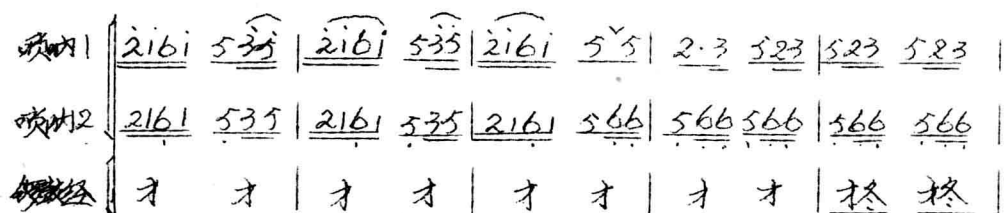 唢呐1 2̇1̇61̇ 535 | 2̇1̇61̇ 535 | 2̇1̇61̇ 5ˇ5 | 2·3 523 | 523 523 |
唢呐2 216̣1 5̣35 | 216̣1 5̣35 | 216̣1 5̣6̣6̣ | 5̣6̣6̣ 5̣6̣6̣ | 5̣6̣6̣ 5̣6̣6̣ |
锣鼓经 才 才 | 才 才 | 才 才 | 才 才 | 才冬 才冬 |